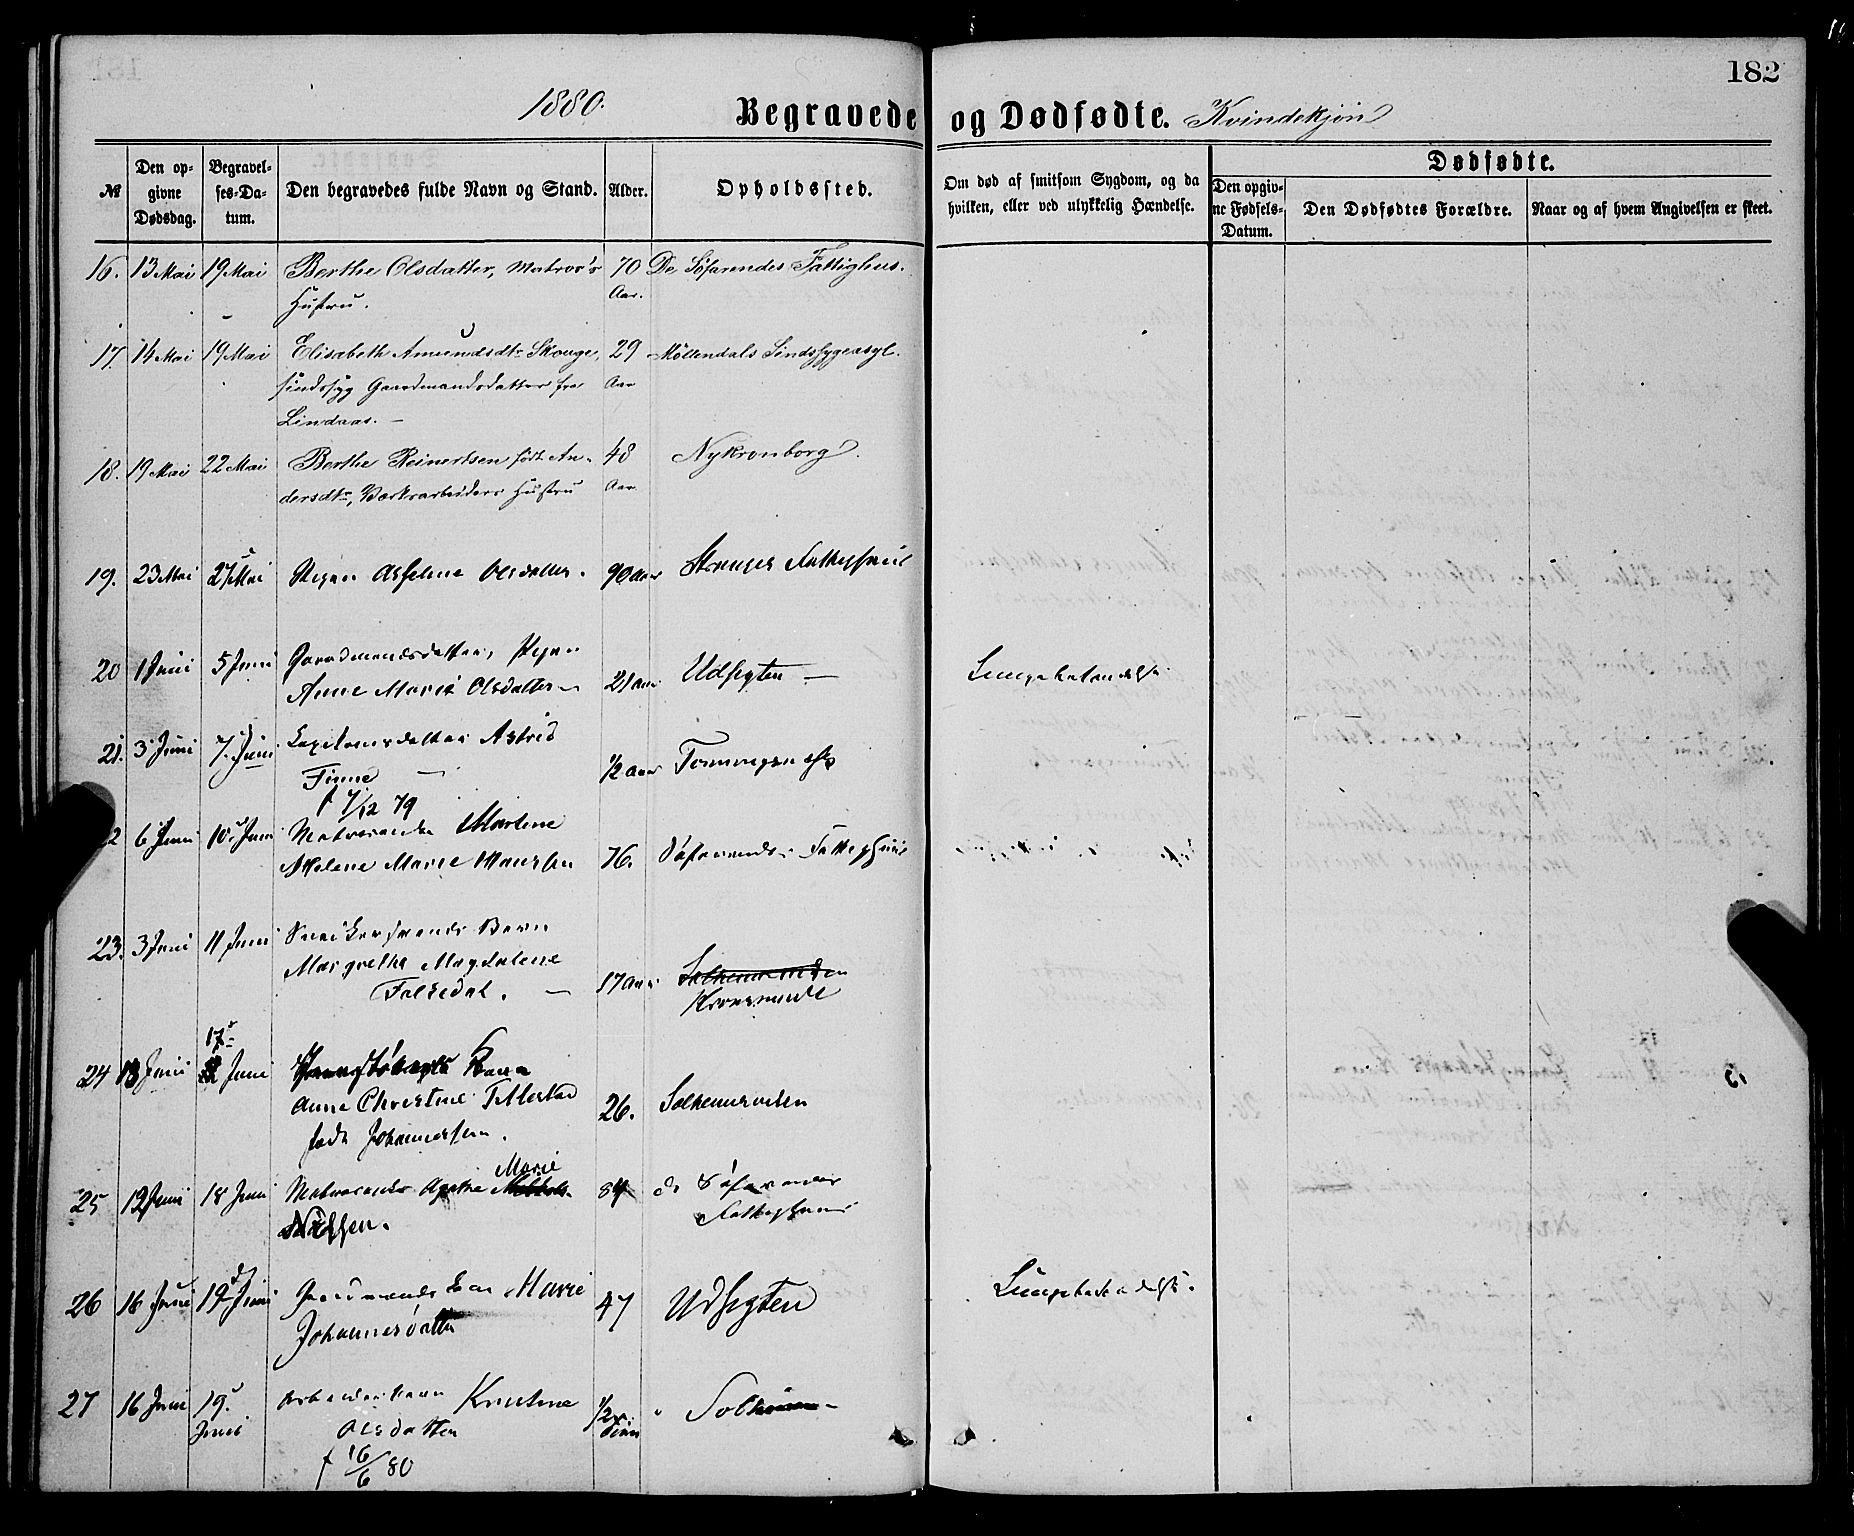 182
1880. Begravede og Dødfødte. Kvindekjøn
№
Den opgivne Dødsdag.
Begravelses-Datum.
Den begravedes fulde Navn og Stand.
Alder.
Opholdssted.
Om død af smitsom Sygdom, og da hvilken, eller ved ulykkelig Hændelse.
Dødfødte.
Den opgivne Fødsels-Datum.
Den Dødfødtes Forældre.
Naar og af hvem Angivelsen er skeet.
16. 13 Mai 19 Mai Berthe Olsdatter, Matros's 70 De Søfarendes Fattighus.
Hustru. Aar.
17. 14 Mai 19 Mai Elisabeth Amundsdtr Skouge, 29 Møllendals Sindssygeasyl.
sindssyg Gaardmandsdatter fra Aar
Lindaas. —
18. 19 Mai 22 Mai Berthe Reinertsen født An- 48 Nykronborg.
dersdtr, Værksarbeiders Hustru Aar
19. 23 Mai 27 Mai Pigen Olsdatter. 90 aar Stranges Fattighuus
20 1 Juni 5 Juni Gaardmandsdatter, Pigen
Anne Marie Olsdatter — 21 aar Udsigten — Lungebetændelse
21. 3 Juni 7. Juni Kapteinsdatter Astrid
Finne — 1/2 aar
f 7/12 79
6 Juni 10. Juni Matrosenke Martine
Helene Marie Hansen 76. Søfarendes Fattighuus
23. 3 Juni 11 Juni Snedkersvends Barn
Margrethe Magdalene
Folkedal. — 17 aar
Kroesminde
17
24 13 Juni Juni Kone
Anne Christine Tillestad 26.
født Johannessen.
Marie
25 12 Juni 18 Juni Matrosenke Agathe 84 de Søfarendes
Nilssen. Fattighuus
26 16 Juni 19 Juni Gaardmands Kone Marie 47 Udsigten Lungebetændelse.
Johannesdatter
27 16 Juni 19. Arbeiderbarn Kristine 1/2
Juni Olsdatter
f 16/6 80